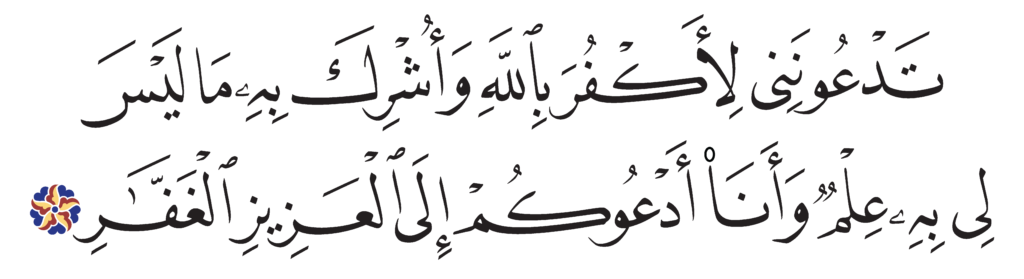 تَدْعُونَنِى لِأَكْفُرَ بِٱللَّهِ وَأُشْرِكَ بِهِۦ مَا لَيْسَ
لِى بِهِۦ عِلْمٌ وَأَنَا۠ أَدْعُوكُمْ إِلَى ٱلْعَزِيزِ ٱلْغَفَّـٰرِ